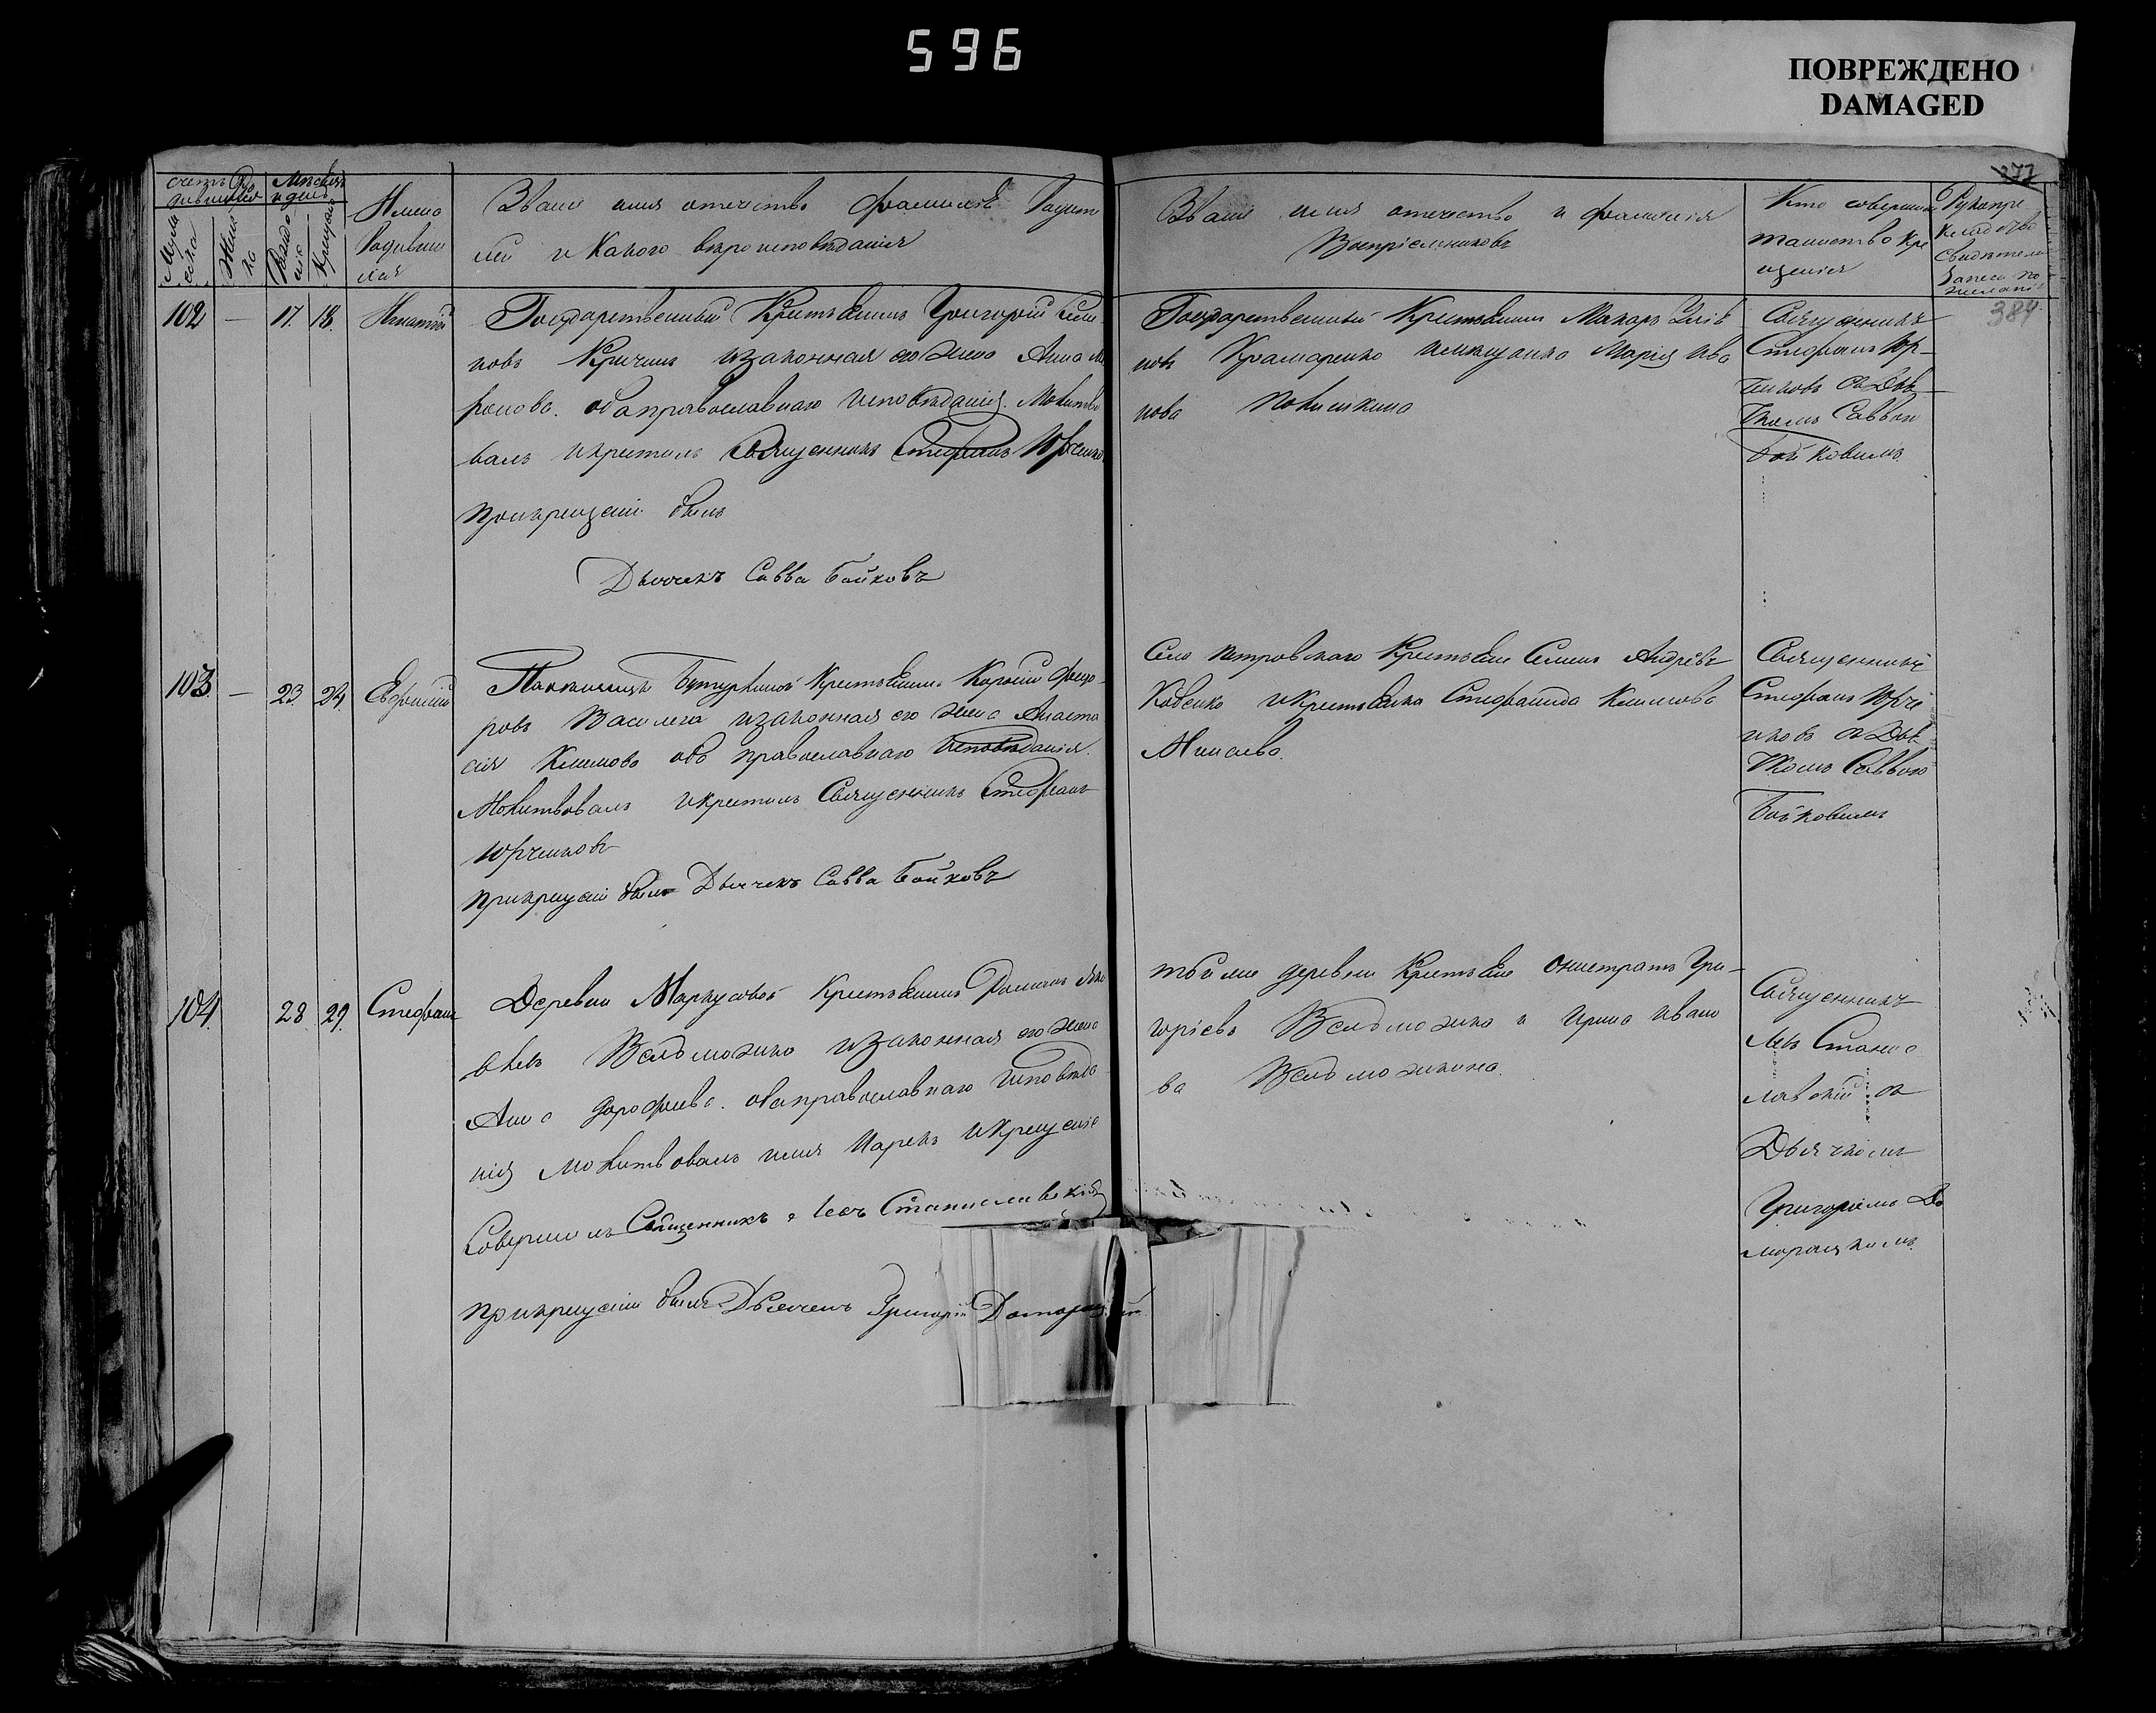 596
ПОВРЕЖДЕНО
DAMAGED
377
счетъ Ро
дившихся
Мѣсяцъ
и день
Муже
ска
Женс
ко
Рожде
нія
Крещенія
Имена
Родивши
хся
Званіе имя отечество фамилія Родите
лей и Какого вѣроисповѣданія
Званіе имя отечество и фамилія
Воспріемниковъ
Кто совершалъ
таинство Кре
щенія
Рукопри
кладство
Свидѣтелей
записи по
желанію
384
102 — 17. 18. Игнатій
Государственный Крестьянинъ Григорій
новъ Кричинъ изаконная его жена Анна
ронова. оба православнаго исповѣданія. Молитво
валъ икрестилъ Священникъ Стефанъ Юрченковъ
прикрещеніи былъ
Дьячекъ Савва Бойковъ
Государственный Крестьянинъ Макаръ
новъ Крамаренко имѣщанка Марія Ива
нова
Священникъ
Стефанъ Юр-
ченковъ съ Дья
чкомъ Саввою
Бойковымъ
103 — 23. 24. Евфимій
Крестьянинъ Федо
ровъ изаконная его жена Анаста
сія Климова оба православнаго исповѣданія.
Молитвовалъ икрестилъ Священникъ Стефанъ
Юрченковъ
прикрещеніи былъ Дьячекъ Савва Бойковъ
Села Петровскаго Крестьяне Семенъ Андреѣвъ
Ковенко икрестьянка Стефанида Климова
Минаева.
Священникъ
Стефанъ Юрче
нковъ съ Дья
чкомъ Саввою
Бойковымъ
104. 28 29. Стефанъ
Деревни Маркусовой Крестьянинъ Яко
влевъ Вельможко изаконная его жена
Анна Дорофеева. оба православнаго исповѣда
нія молитвовалъ имя нарекъ икрещеніе
Совершилъ Священникъ Левъ Станиславскій
прикрещеніи былъ Дьячекъ Григорій Доморацкій
тойже деревни Крестьяне Онистратъ Гри-
горіевъ Вельможко и Ирина Ивано
ва Вельможкина.
Священникъ
Левъ Станис
лавскій съ
Дьячкомъ
Григоріемъ До
морацкимъ.